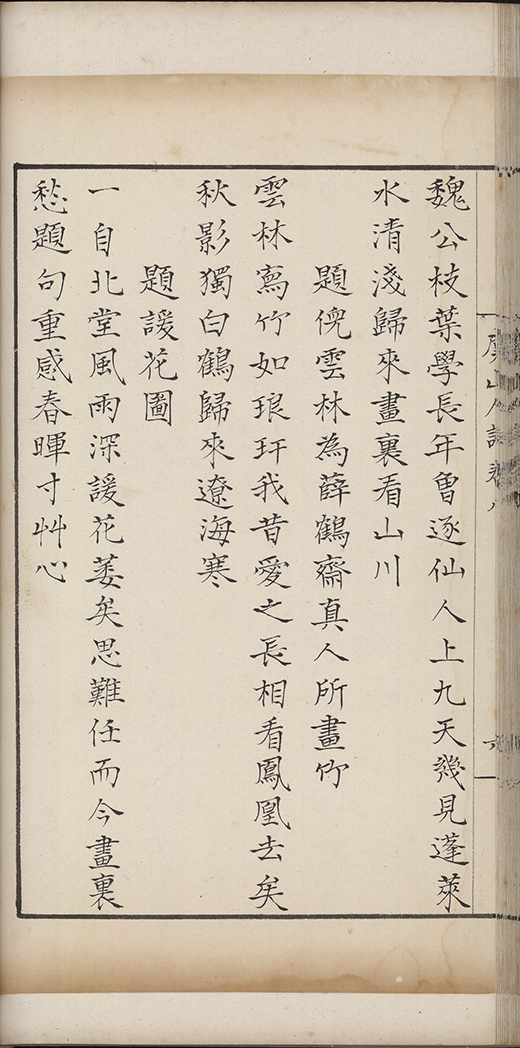 魏公枝葉學長年曾逐仙人上九天幾見蓬萊
水清淺歸來畫裏看山川
題倪雲林為薛鶴齋真人所畫竹
雲林寫竹如琅玕我昔愛之長相看鳳凰去矣
秋影獨白鶴歸來遼海寒
題諼花圖
一自北堂風雨深諼花萎矣思難任而今畫裏
愁題句重感春暉寸艸心